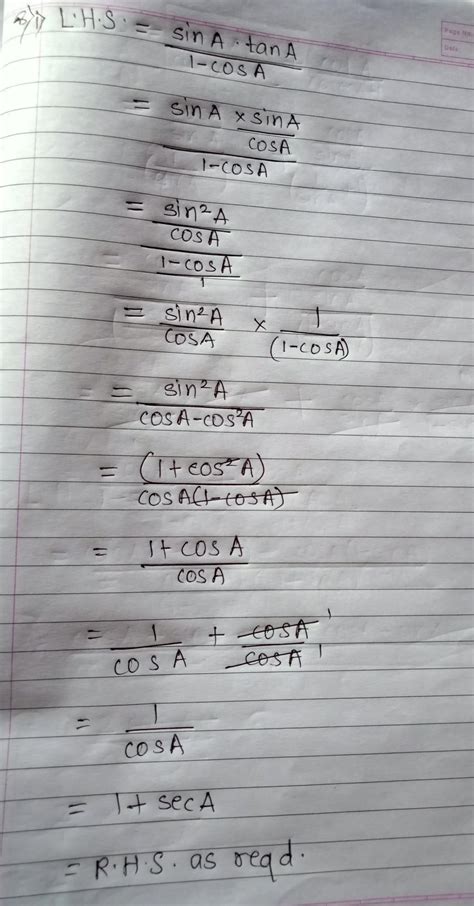 3) i) L.H.S. = sinA . tanA / 1-cosA
= sinA × sinA/cosA / 1-cosA
= sin²A/cosA / 1-cosA/1
= sin²A/cosA × 1/(1-cosA)
= sin²A / cosA-cos²A
= (1+cos²A) / cosA(1-cosA)
= 1+cosA / cosA
= 1/cosA + cosA/cosA 1 1
= 1/cosA
= 1+secA
= R.H.S. as reqd.